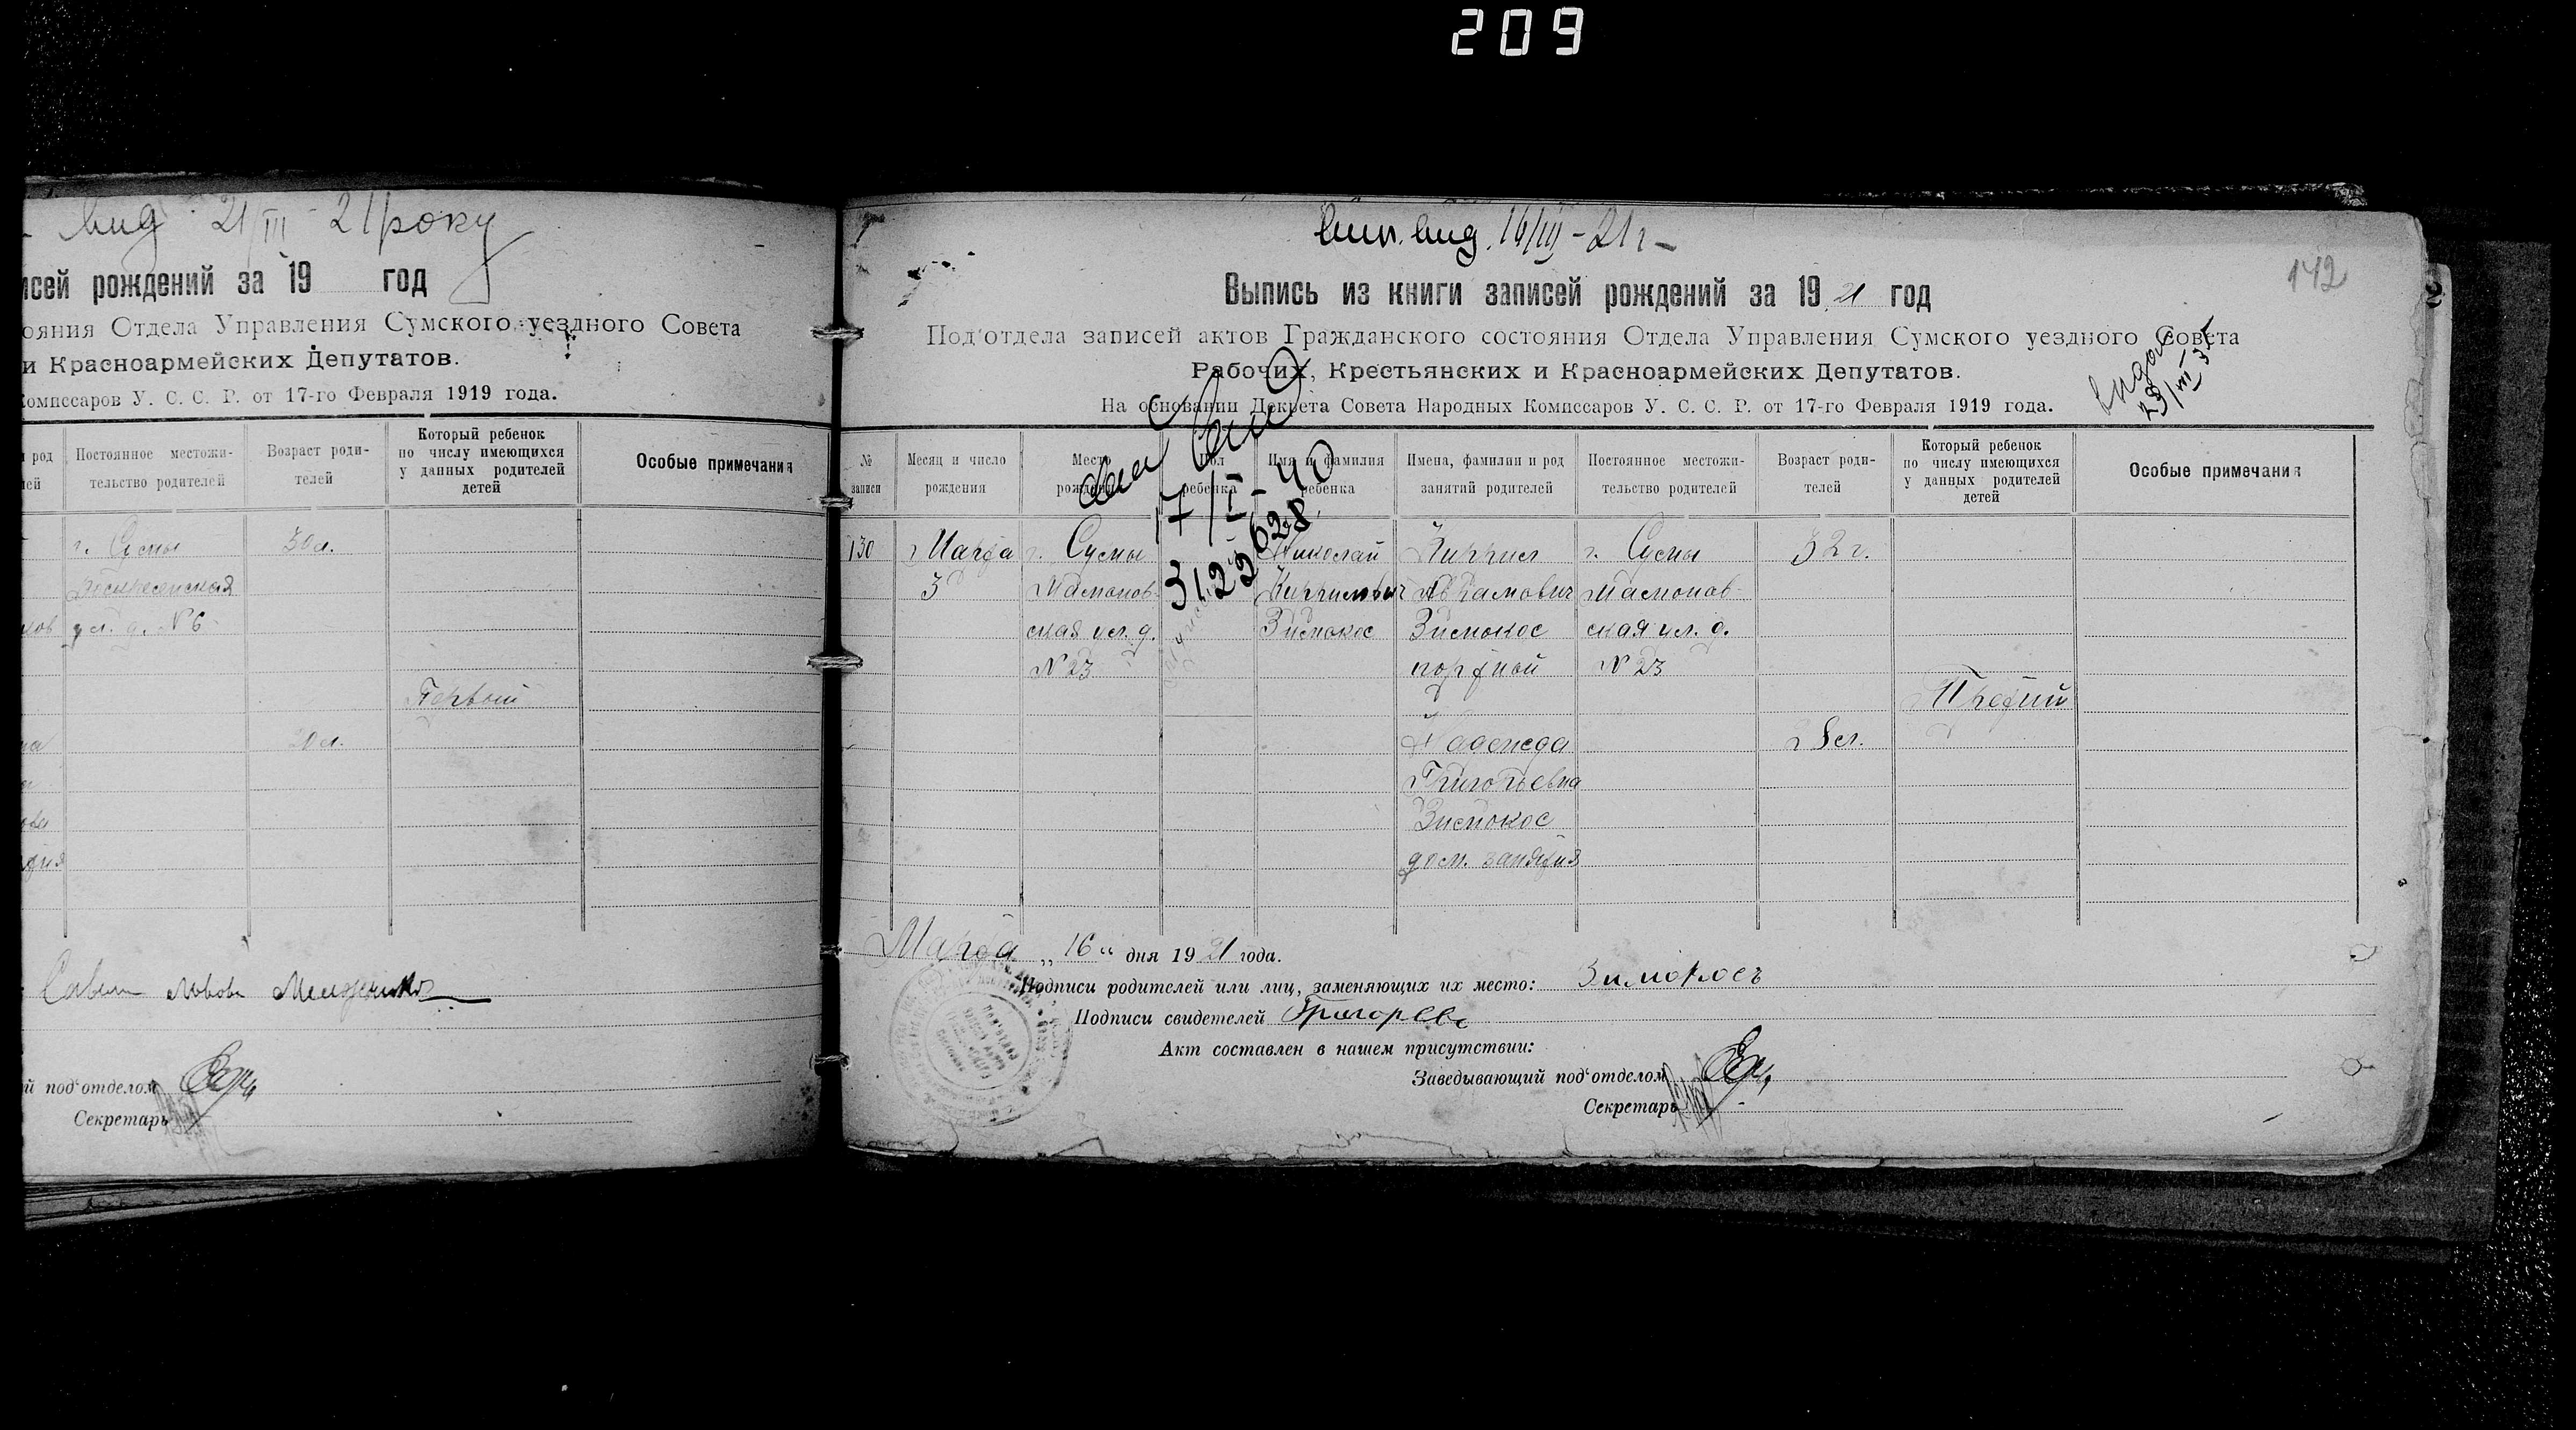 209
вид 21/III - 21 року
исей рождений за 19 год
ояния Отдела Управления Сумского уездного Совета
и Красноармейских Депутатов.
Комиссаров У. С. С. Р. от 17-го Февраля 1919 года.
род
Постоянное местожи-
тельство родителей
Возраст роди-
телей
Который ребенок
по числу имеющихся
у данных родителей
детей
Особые примечания
г. Сумы
30 л.
Воскресенская
ул. д. N 6
Первый
20 л.
й под'отделом
Секретарь
вип. вид. 16/III - 21 г
142
Выпись из книги записей рождений за 1921 год
Под'отдела записей актов Гражданского состояния Отдела Управления Сумского уездного Совета
Рабочих, Крестьянских и Красноармейских Депутатов.
На основании Декрета Совета Народных Комиссаров У. С. С. Р. от 17-го Февраля 1919 года.
17/I - 40
№
записи
Месяц и число
рождения
Место
рождения
Пол
ребенка
Имя и фамилия
ребенка
Имена, фамилии и род
занятий родителей
Постоянное местожи-
тельство родителей
Возраст роди-
телей
Который ребенок
по числу имеющихся
у данных родителей
детей
Особые примечания
130
Марта
3
г. Сумы
Мамонов-
ская ул. д.
N 23
Николай
Кириллович
Зимокос
Кирилл
Авкамович
Зимокос
портной
г. Сумы
Мамонов-
ская ул. д.
N 23
32 г.
Третий
Надежда
Григорьевна
Зимокос
дом. занятия
28 л.
Марта „16“ дня 1921 года.
Подписи родителей или лиц, заменяющих их место: Зимокосъ
Подписи свидетелей
Акт составлен в нашем присутствии:
Заведывающий под'отделом
Секретарь